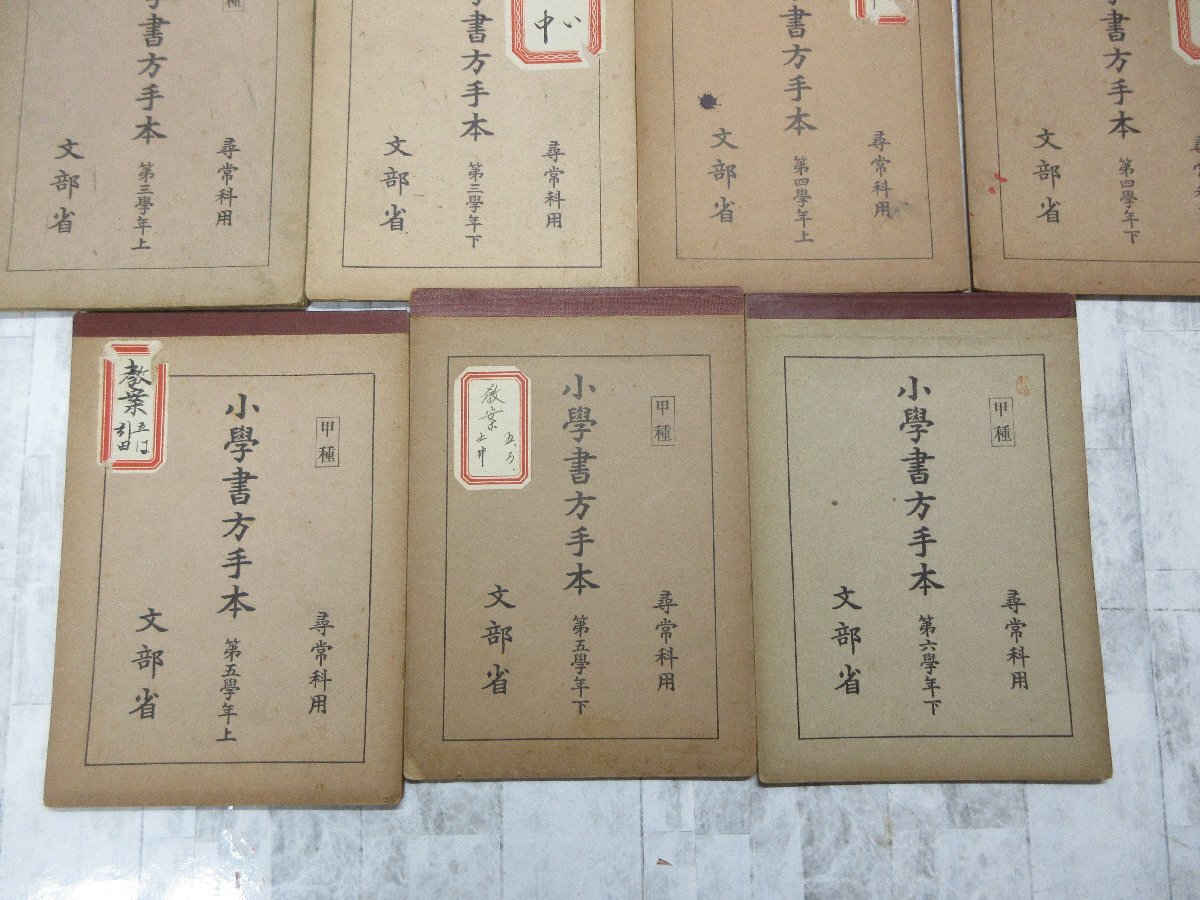 書方手本
第三學年上
尋常科用
文部省
中心
書方手本
第三學年下
尋常科用
文部省
書方手本
第四學年上
尋常科用
文部省
書方手本
第四學年下
文部省
教案
五は
甲種
小學書方手本
第五學年上
尋常科用
文部省
教案
五、ろ
甲種
小學書方手本
第五學年下
尋常科用
文部省
甲種
小學書方手本
第六學年下
尋常科用
文部省